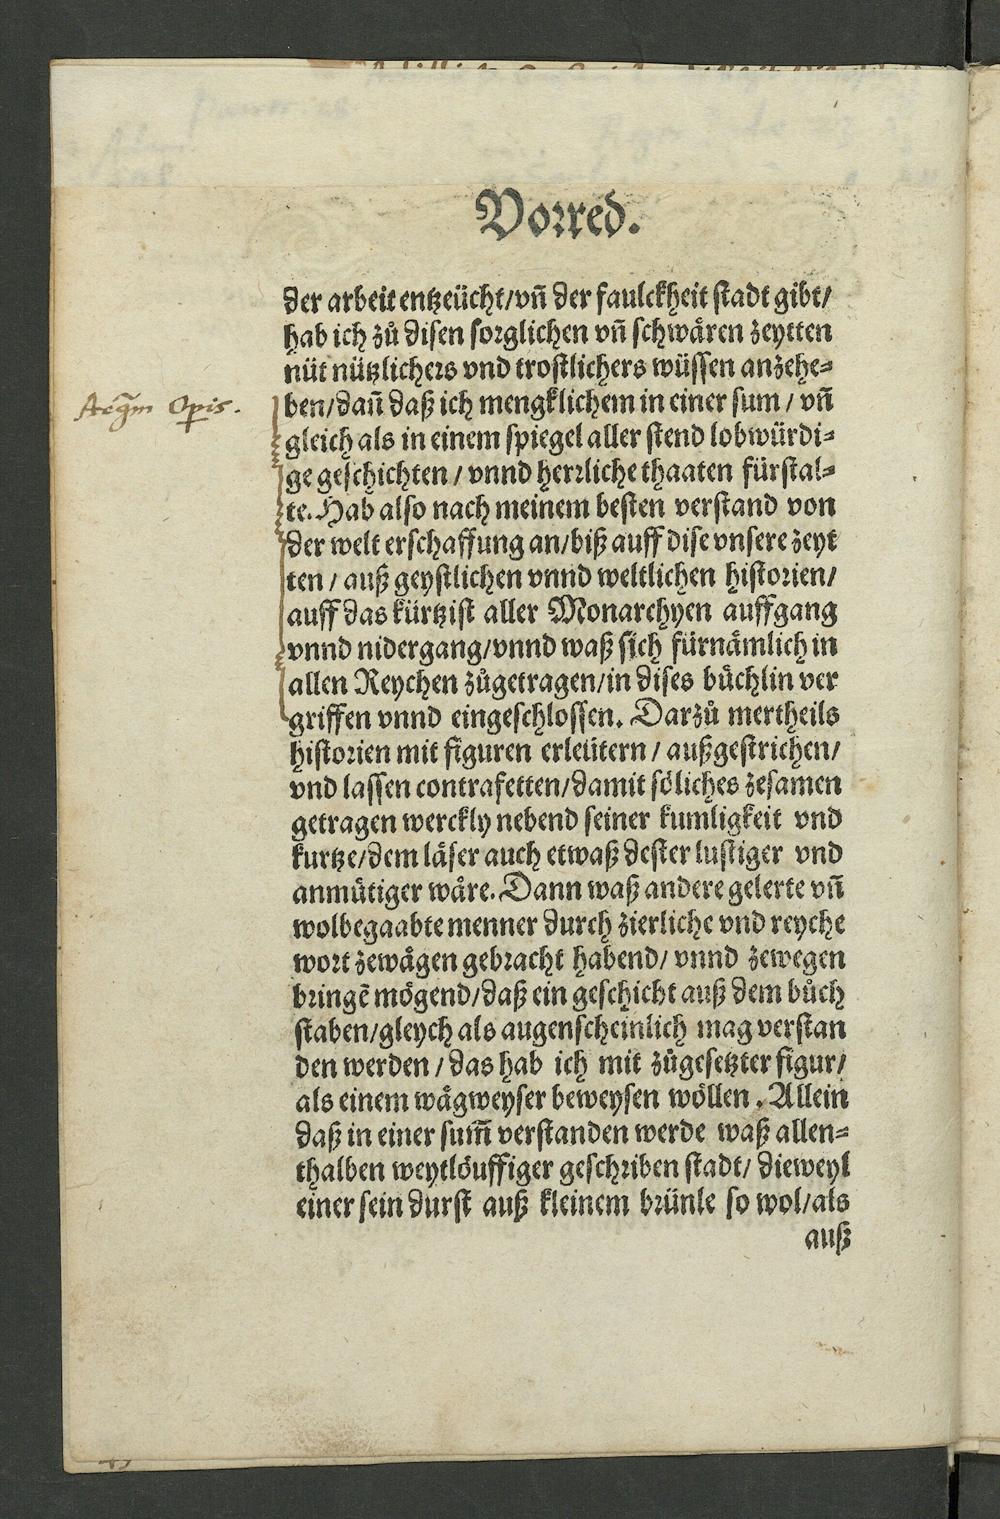 Vorred.
der arbeit entzeücht/vñ der faulckheit stadt gibt/
hab ich zů disen sorglichen vñ schwären zeytten
nüt nützlichers vnd trostlichers wüssen anzehe-
ben/dañ daß ich mengklichem in einer sum / vñ
gleich als in einem spiegel aller stend lobwürdi-
ge geschichten / vnnd herrliche thaaten fürstal-
te. Hab also nach meinem besten verstand von
der welt erschaffung an/biß auff dise vnsere zeyt
ten / auß geystlichen vnnd weltlichen historien/
auff das kürtzist aller Monarchyen auffgang
vnnd nidergang/vnnd waß sich fürnämlich in
allen Reychen zůgetragen/in dises büchlin ver
griffen vnnd eingeschlossen. Darzů mertheils
historien mit figuren erleütern / außgestrichen/
vnd lassen contrafetten/damit söliches zesamen
getragen werckly nebend seiner kumligkeit vnd
kurtze/dem läser auch etwaß dester lustiger vnd
anmütiger wäre. Dann waß andere gelerte vñ
wolbegaabte menner durch zierliche vnd reyche
wort zewägen gebracht habend/ vnnd zewegen
bringē mögend/daß ein geschicht auß dem bůch
staben/gleych als augenscheinlich mag verstan
den werden / das hab ich mit zůgesetzter figur/
als einem wägweyser beweysen wöllen. Allein
daß in einer sum̃ verstanden werde waß allen-
thalben weytlöuffiger geschriben stadt/ dieweyl
einer sein durst auß kleinem brünle so wol/als
auß
Opis.